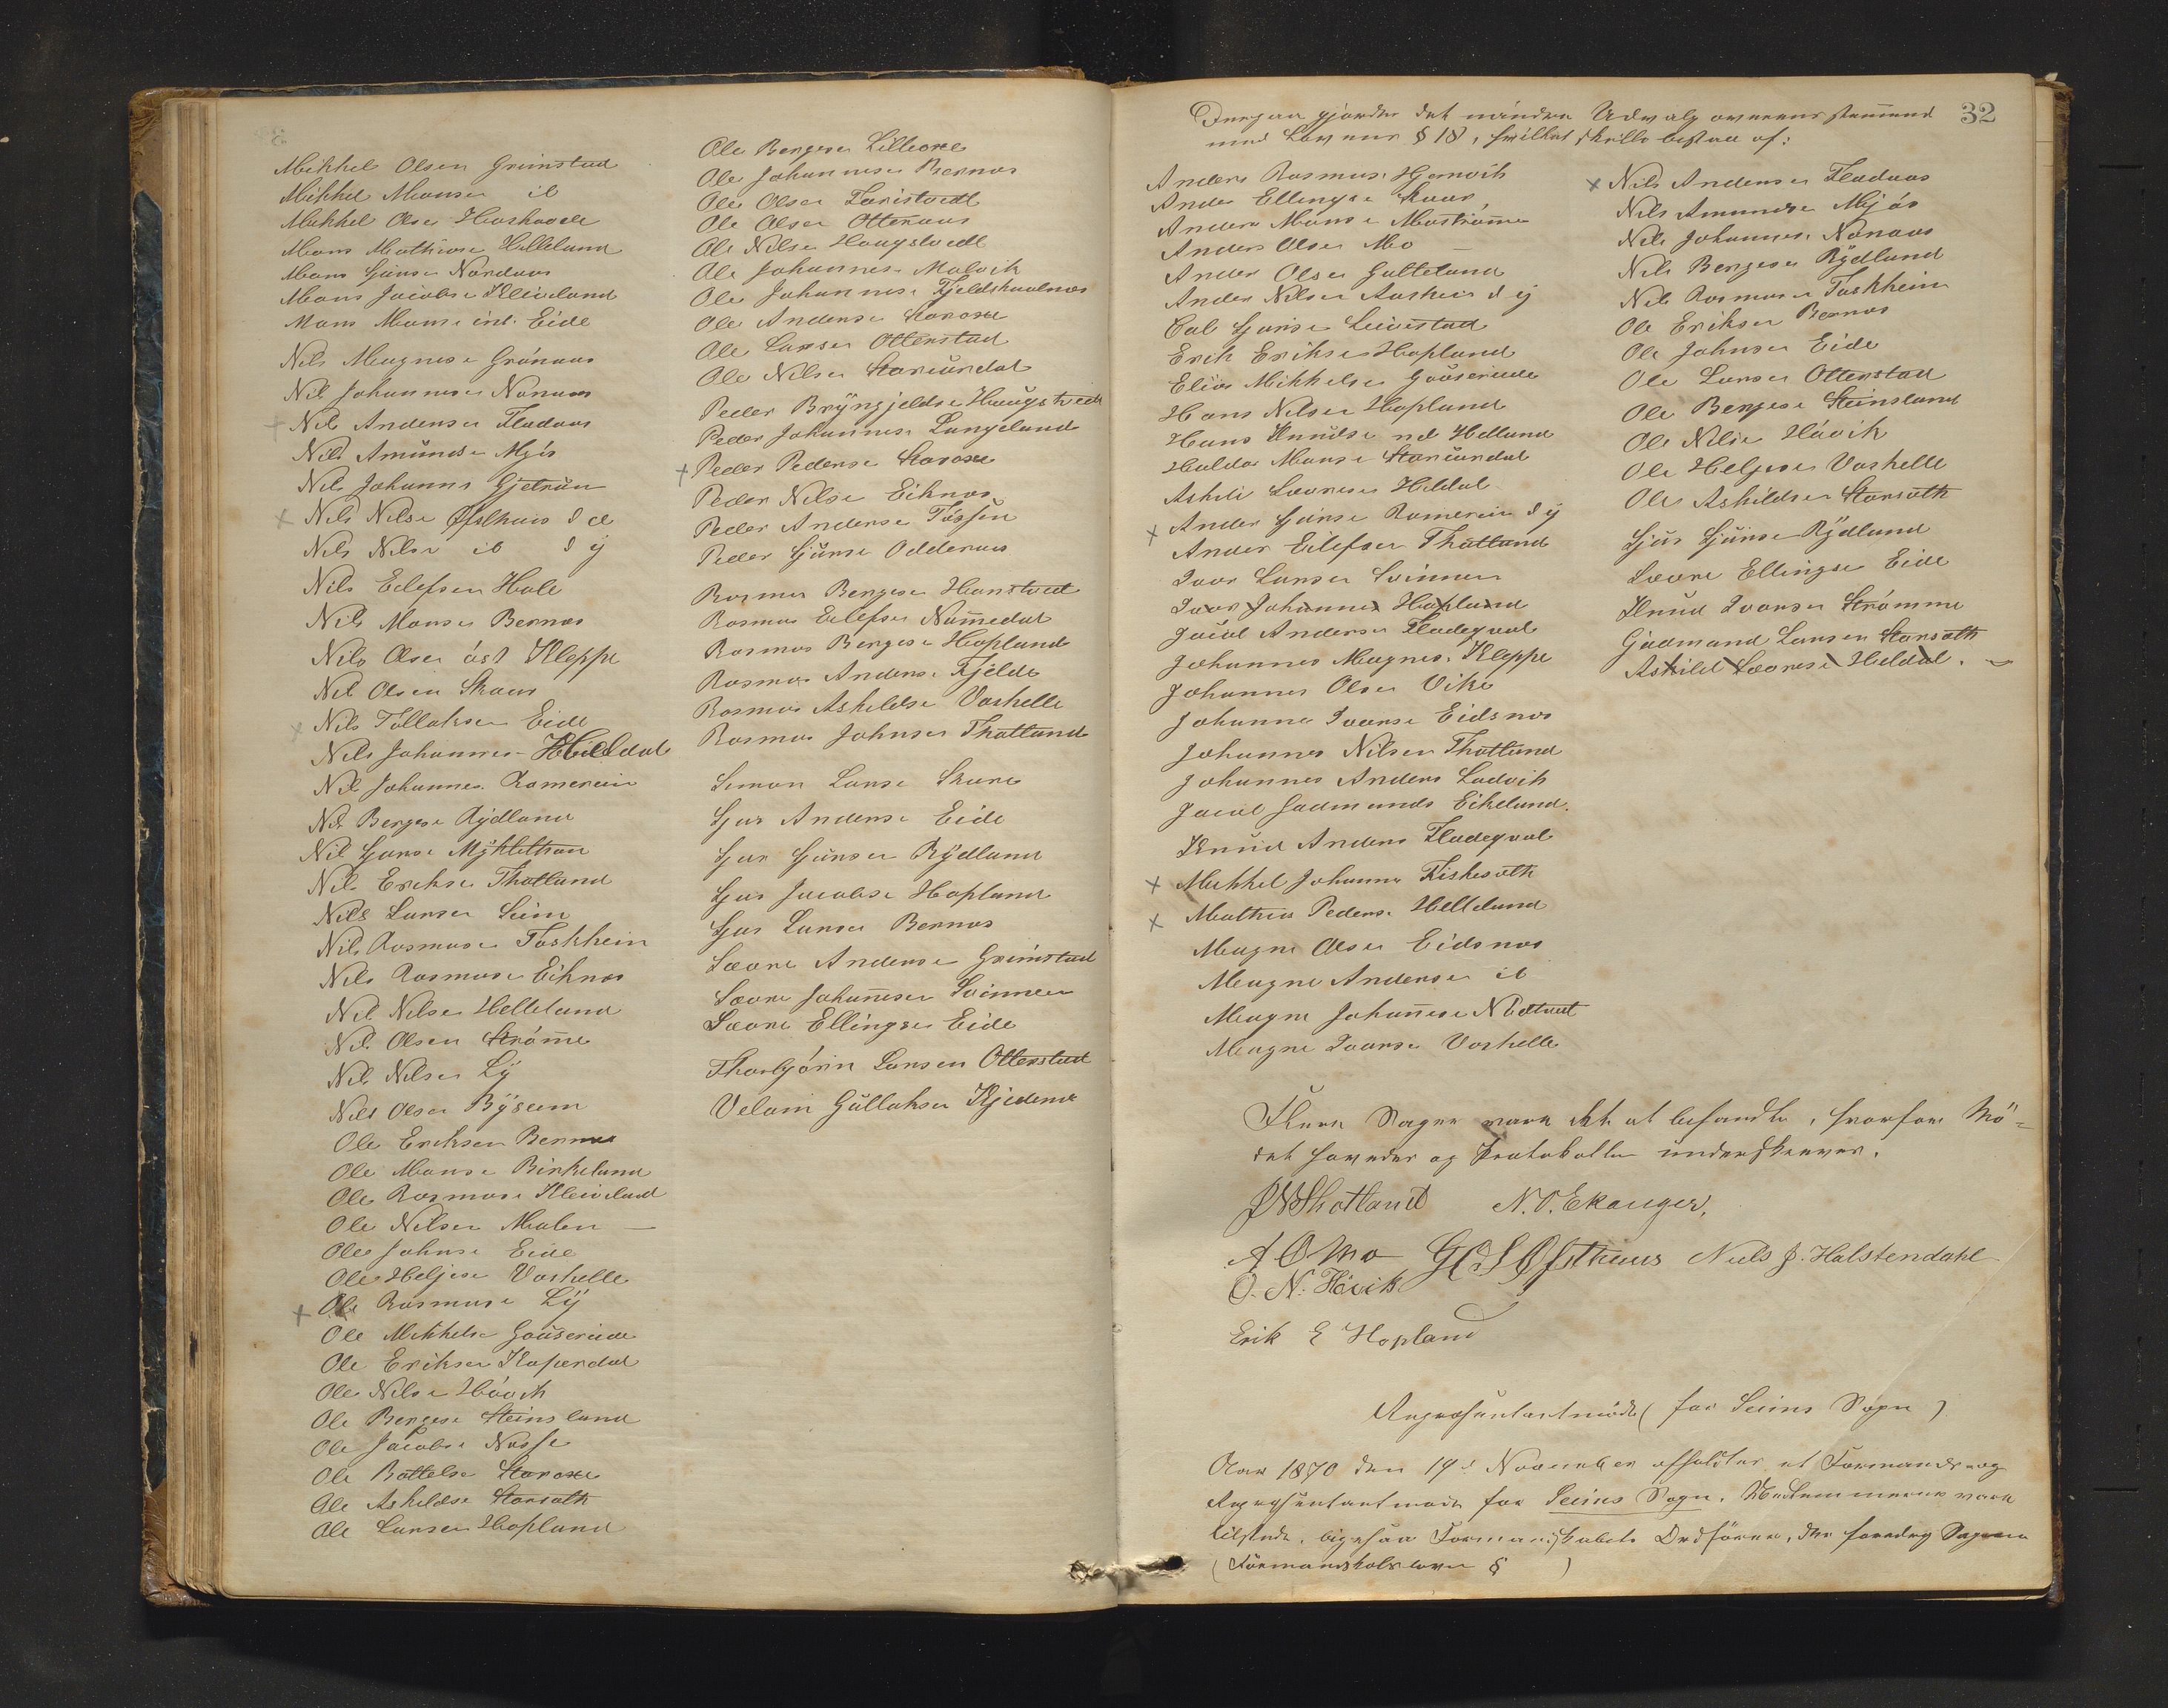 Mikkel Olsen Grimstad
Mikkel Monsen ib
Mikkel Olse Haskaarde
Mons Mathiase Helleland
Mons Sjurse Nordaas
Mons Jacobse Kleiveland
Mons Monse ind. Eide
Nils Magnese Grønaas
Nils Johannese Nonaas
Nils Andersen Fladaas
Nils Amundse Mjøs
Nils Johanns Gjetrun
Nils Nilse Øfsthuus
Nils Nilse ib
Nils Eilefsen Hole
Nils Monse Bernæs
Nils Olsen Kleppe
Nils Olsen Skaar
Nils Tollaksen Eide
Nils Johannes Heldal
Nils Johannes Romerein
Nils Bergese Rydland
Nils Sjurse Mykletun
Nils Erikse Thotland
Nils Larsen Seim
Nils Rasmuse Toskheim
Nils Rasmuse Eiknæs
Nils Nilse Helleland
Nils Olsen Strømme
Nils Nilsen Ly
Nils Olsen Byseim
Ole Eriksen Bernæs
Ole Monse Birkeland
Ole Rasmuse Kleiveland
Ole Nilsen Malen
Ole Johnse Eide
Ole Heljese Vaskelle
Ole Rasmuse Ly
Ole Mikkelse Gouserude
Ole Eriksen Koperdal
Ole Nilse Høvik
Ole Bergese Steinsland
Ole Jacobse Nosse
Ole Bottelse Storoxe
Ole Askildse Storsæth
Ole Larsen Hopland
Ole Bergese Lilleoxe
Ole Johannese Bernæs
Ole Olsen Taristvedt
Ole Olsen Otteraas
Ole Nilse Haugstvedt
Ole Johannese Molvik
Ole Johannese Fjeldskaalnes
Ole Anderse Storoxe
Ole Larsen Otterstad
Ole Nilse Storeurdal
Peder Bryngjeldse Haugstvedt
Peder Johannese Langeland
Peder Pederse Storoxe
Peder Nilse Eiknæs
Peder Anderse
Peder Sjurse Odderaas
Rasmus Bergese Hanstved
Rasmus Eilefsen Nommedal
Rasmus Bergese Hopland
Rasmus Anderse Fjelde
Rasmus Askildse Vaskelle
Rasmus Johnsen Thotland
Simon Larse Skare
Sjur Anderse Eide
Sjur Sjursen Rydland
Sjur Jacobse Hopland
Sjur Larsen Bernæs
Sævre Anderse Grimstad
Sævre Johannese Svinnen
Sævre Ellingsen Eide
Thorbjørn Larsen Otterstad
Velom Gullaksen Kjedema
32
Dernæst gjordes det mindre Udvalg overensstemmend
med Lovens § 18, hvilket skulle bestaa af:
Anders Rasmus. Hjemvik
Anders Ellingse Skaar
Anders Monse Mostrømme
Anders Olse Mo
Anders Olsen Galteland
Anders Nilsen Askeim
Col Sjurse Leivestad
Erik Eriksen Hopland
Elias Mikkelse Gouserude
Hans Nilsen Hopland
Hans Knudse nd Helland
Haldor Monse Storeurdal
Askild Sævrese Heldal
Anders Sjurse Romerein
Anders Eilefsen Thotland
Ivar Larsen Svinnen
Ivar Johannes Hopland
Jacob Anderse Fladeqval
Johannes Magnes. Kleppe
Johannes Olsen Vike
Johannes Ivarse Eidsnæs
Johannes Nilsen Thotland
Johannes Anders Ladvik
Jacob Gudmunds Eikeland
Knud Anders Fladeqval
Mikkel Johanne Fiskesæth
Mathias Peders. Helleland
Magne Olsen Eidsnæs
Magne Andersen ib
Magne Johannese Nedtvet
Magne Ivarse Vaskelle
Nils Andersen Fladaas
Nils Amundse Mjøs
Nils Johannese Nonaas
Nils Bergese Rydland
Nils Rasmuse Toskheim
Ole Eriksen Bernæs
Ole Johnsen Eide
Ole Larsen Otterstad
Ole Bergese Steinsland
Ole Nilse Høvik
Ole Heljese Vaskelle
Ole Askildsen Storsæth
Sjur Sjurse Rydland
Sævre Ellingse Eide
Knud Ivarsen Strømme
Gudmand Larsen Storsæth
Askild Sævrese Heldal.
Flere Sager vare ikke at behandle, hvorfor Mø-
det hævedes og Protokollen underskreves.
J N Thotland N. O. Ekanger.
A O Mo Øfsthuus Niels J. Halstendahl
O. N. Høvik
Erik E Hopland
Repræsentantmøde (for Seims Sogn)
Aar 1870 den 19de November afholdtes et Formands og
Repræsentantmøde for Seims Sogn. Medlemmerne vare
tilstede, ligesaa Formandskabets Ordfører, der foredrog Sagerne
(Formandskabsloven § )